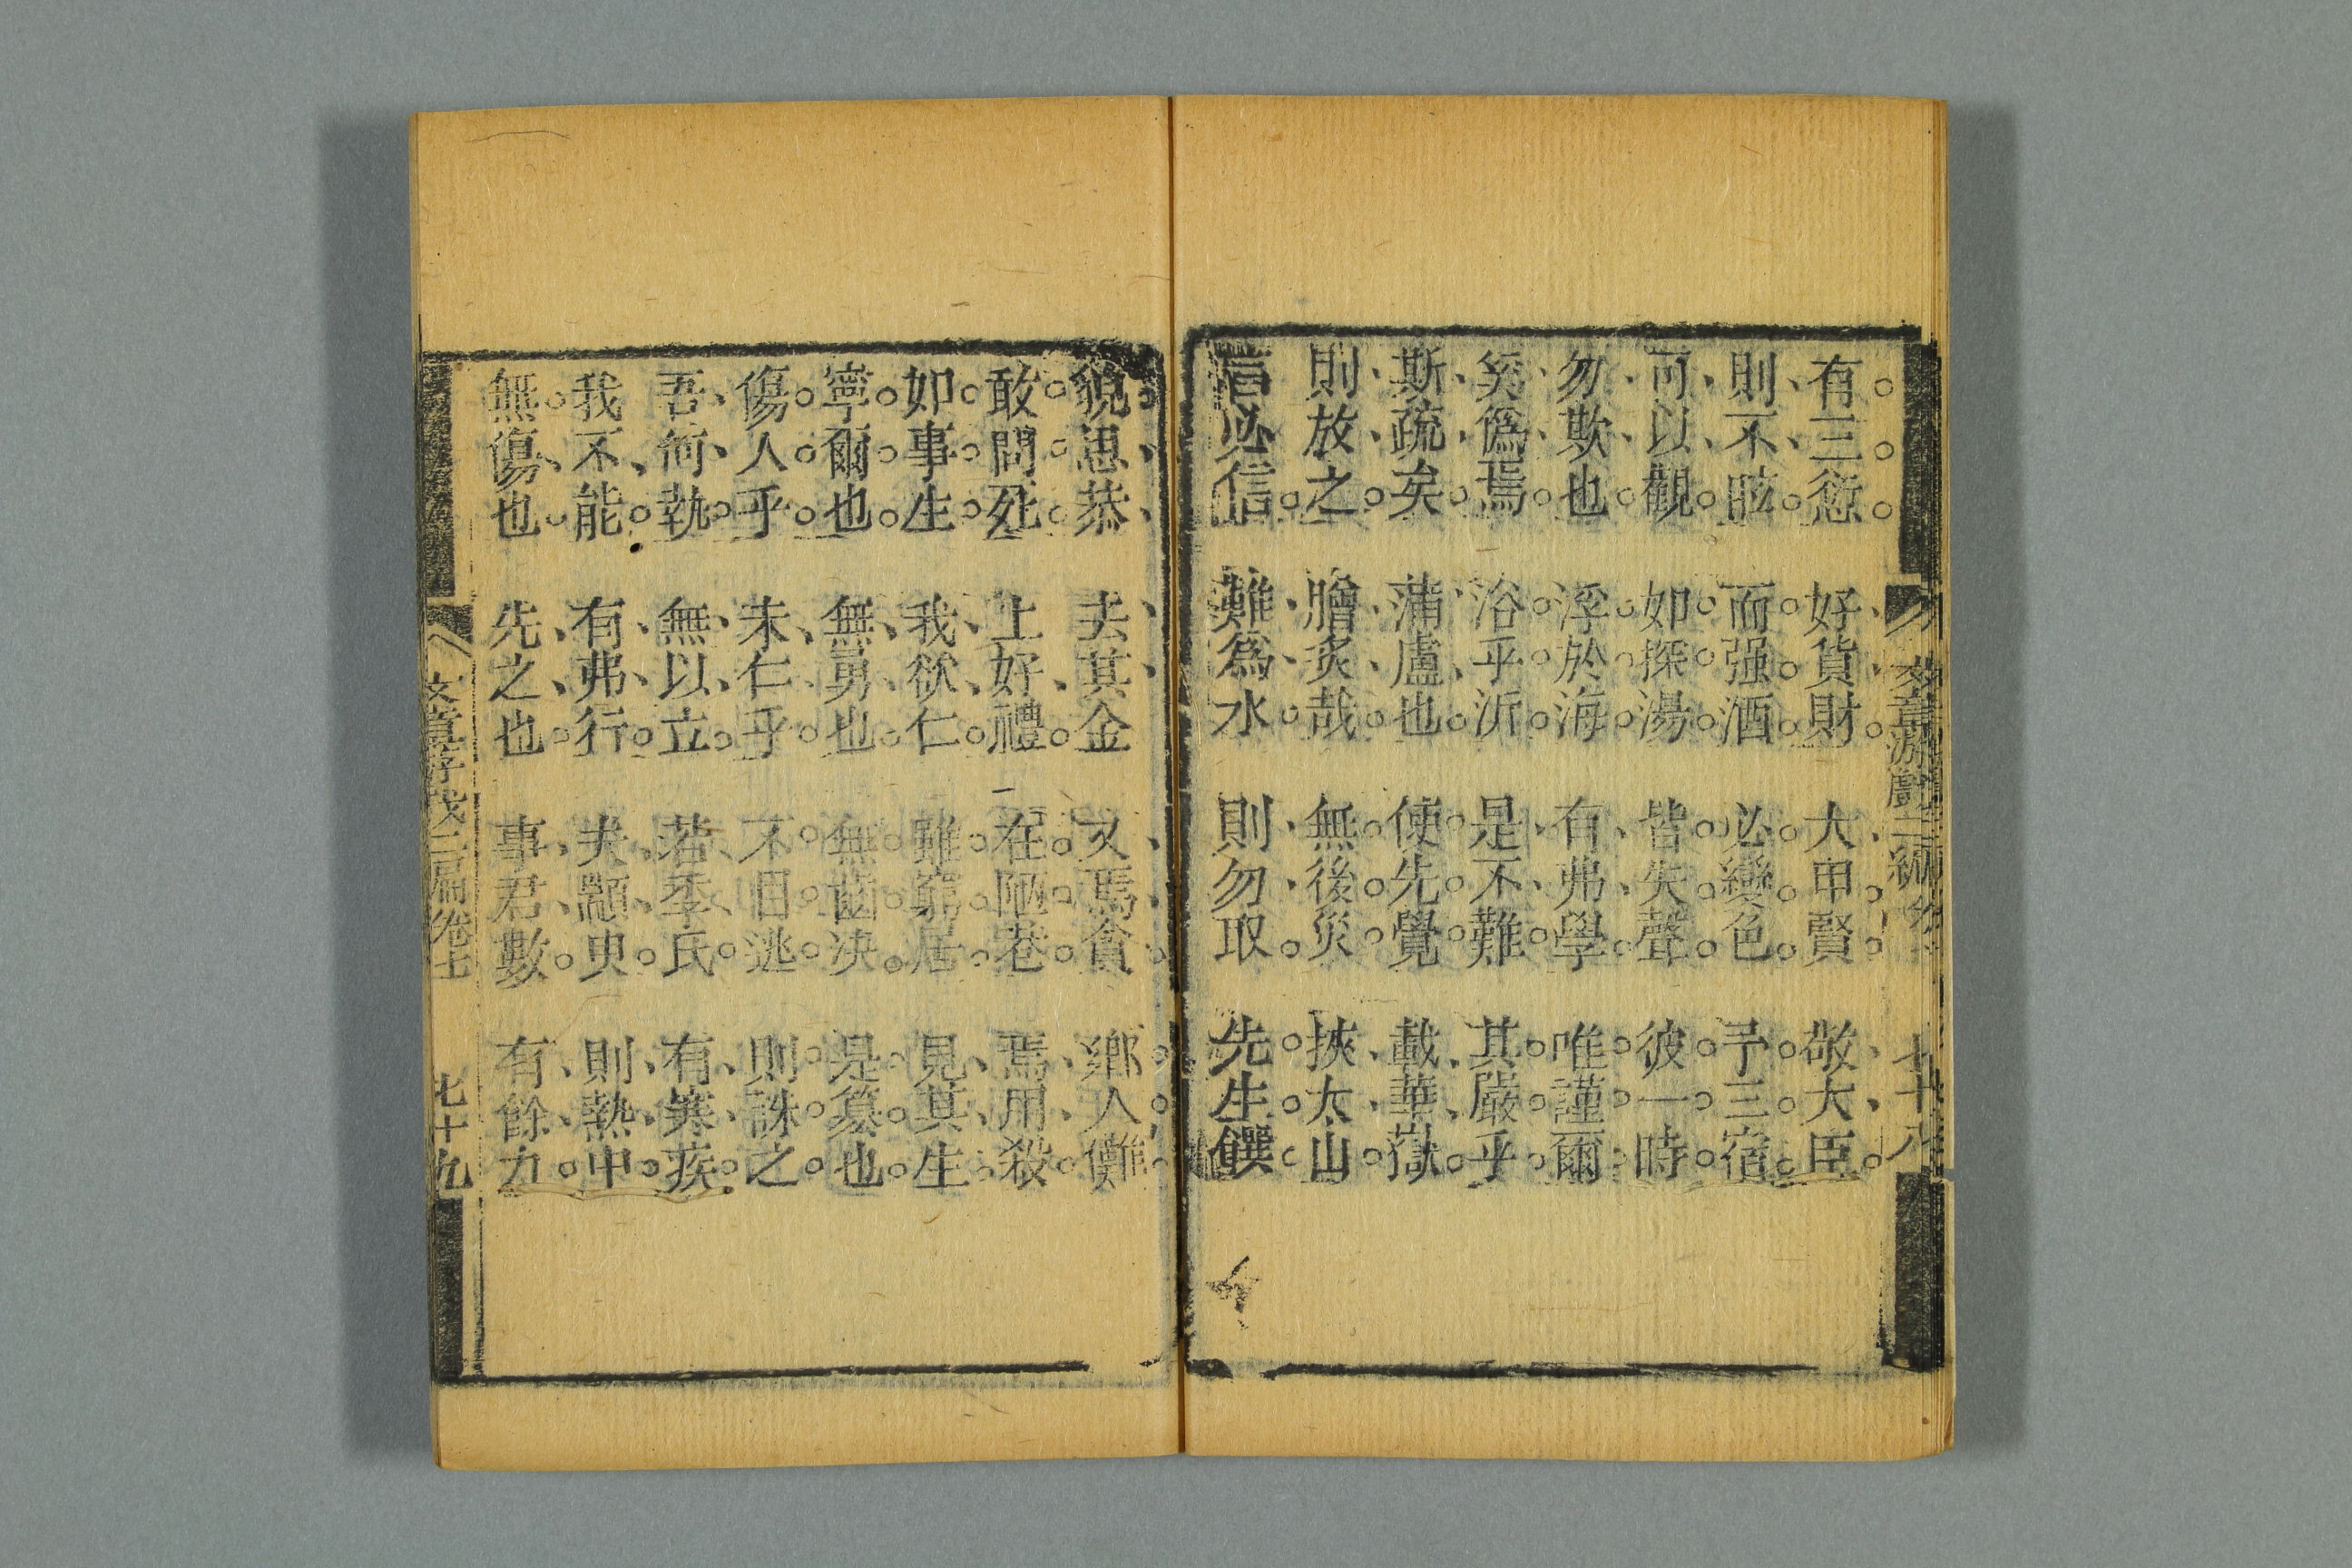 有三愆 好貨財 大甲賢 敬大臣
則不眩 而强酒 必變色 予三宿
可以觀 如探湯 皆失聲 彼一時
勿欺也 浮於海 有弗學 唯謹爾
奚爲焉 浴乎沂 是不難 其嚴乎
斯疏矣 蒲盧也 使先覺 載華嶽
則放之 膾炙哉 無後災 挾太山
言必信 難爲水 則勿取 先生饌
文章游戲三編 七十八
貌思恭 去其金 又焉貪 鄉人儺
敢問死 上好禮 在陋巷 焉用殺
如事生 我欲仁 雖窮居 見其生
寧爾也 無勇也 無齒決 是簒也
傷人乎 未仁乎 不目逃 則誅之
吾何執 無以立 若季氏 有寒疾
我不能 有弗行 夫顓臾 則熱中
無傷也 先之也 事君數 有餘力
三扁卷七 七十九